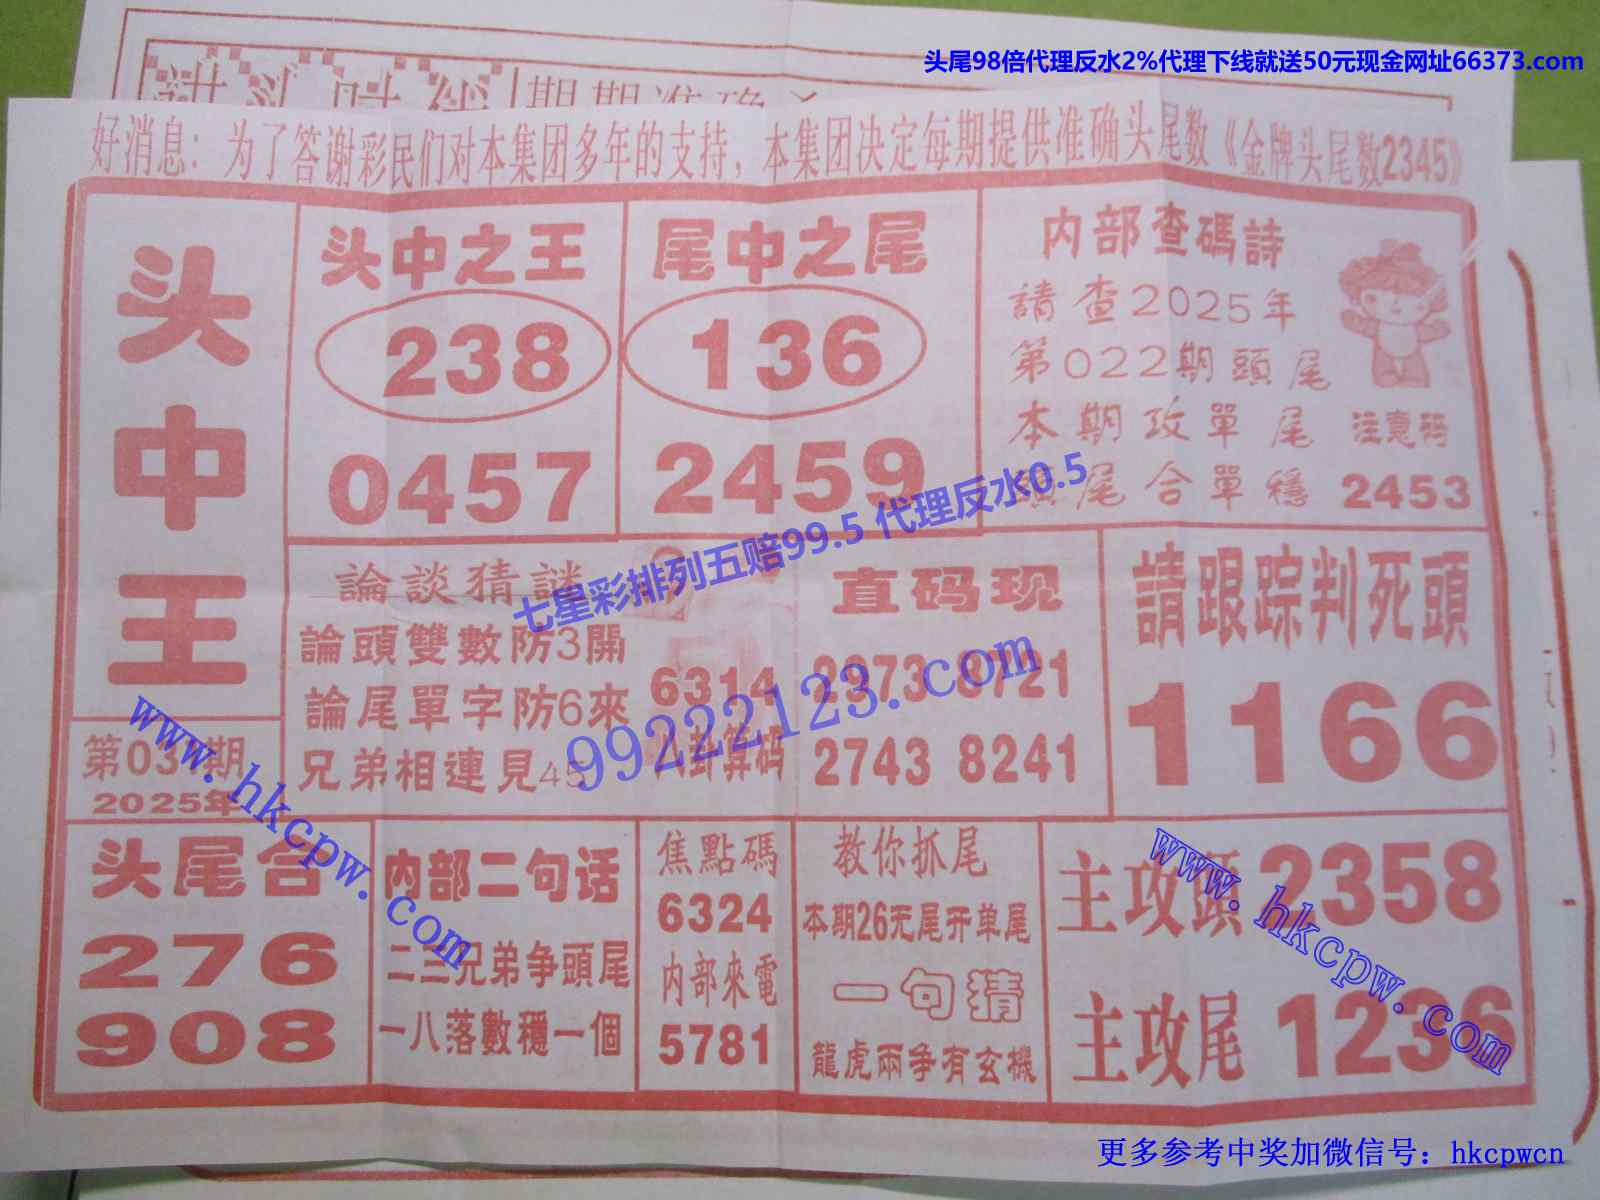 头尾98倍代理反水2%代理下线就送50元现金网址66373.com
好消息：为了答谢彩民们对本集团多年的支持，本集团决定每期提供准确头尾数《金牌头尾数2345》
头中王
第03期
2025年
头中之王
238
0457
尾中之尾
136
2459
内部查碼詩
請查2025年
第022期頭尾
本期攻單尾
尾合單穩
注意码
2453
七星彩排列五赔99.5 代理反水0.5
論談猜謎
論頭雙數防3開
論尾單字防6來
兄弟相連見45
6314
八卦算码
直码现
2973 8721
2743 8241
99222123.com
請跟踪判死頭
1166
www.hkcpw.com
头尾合
276
908
内部二句话
二三兄弟争頭尾
一八落數穩一個
焦點碼
6324
内部來電
5781
教你抓尾
本期26无尾开单尾
一句猜
龍虎兩争有玄機
主攻頭 2358
主攻尾 1236
www.hkcpw.com
更多参考中奖加微信号：hkcpwcn